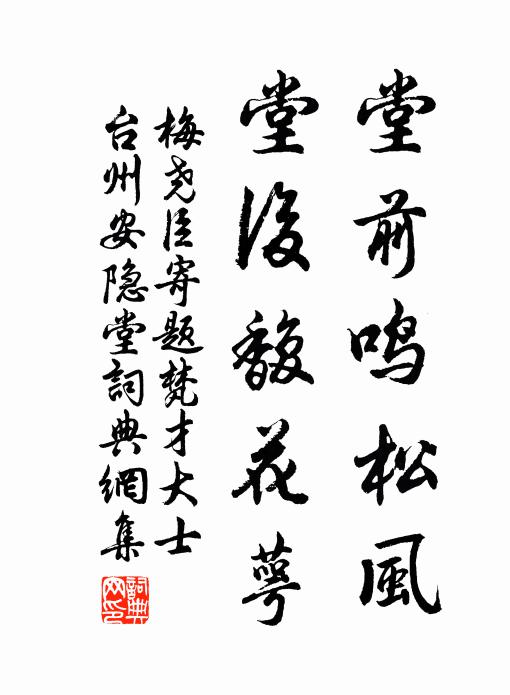 堂前鸣松風
堂後馥花萼
梅尧臣寄题梵才大士
台州安隐堂詞典網集
詞典網印